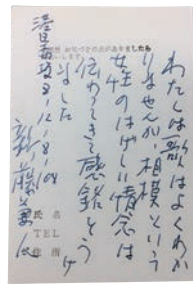 わたしは歌はよくわか
りませんが、相模という
女性のはげしい情念は
伝わってきて感銘をう
けました
新藤兼人
氏名
TEL
住所